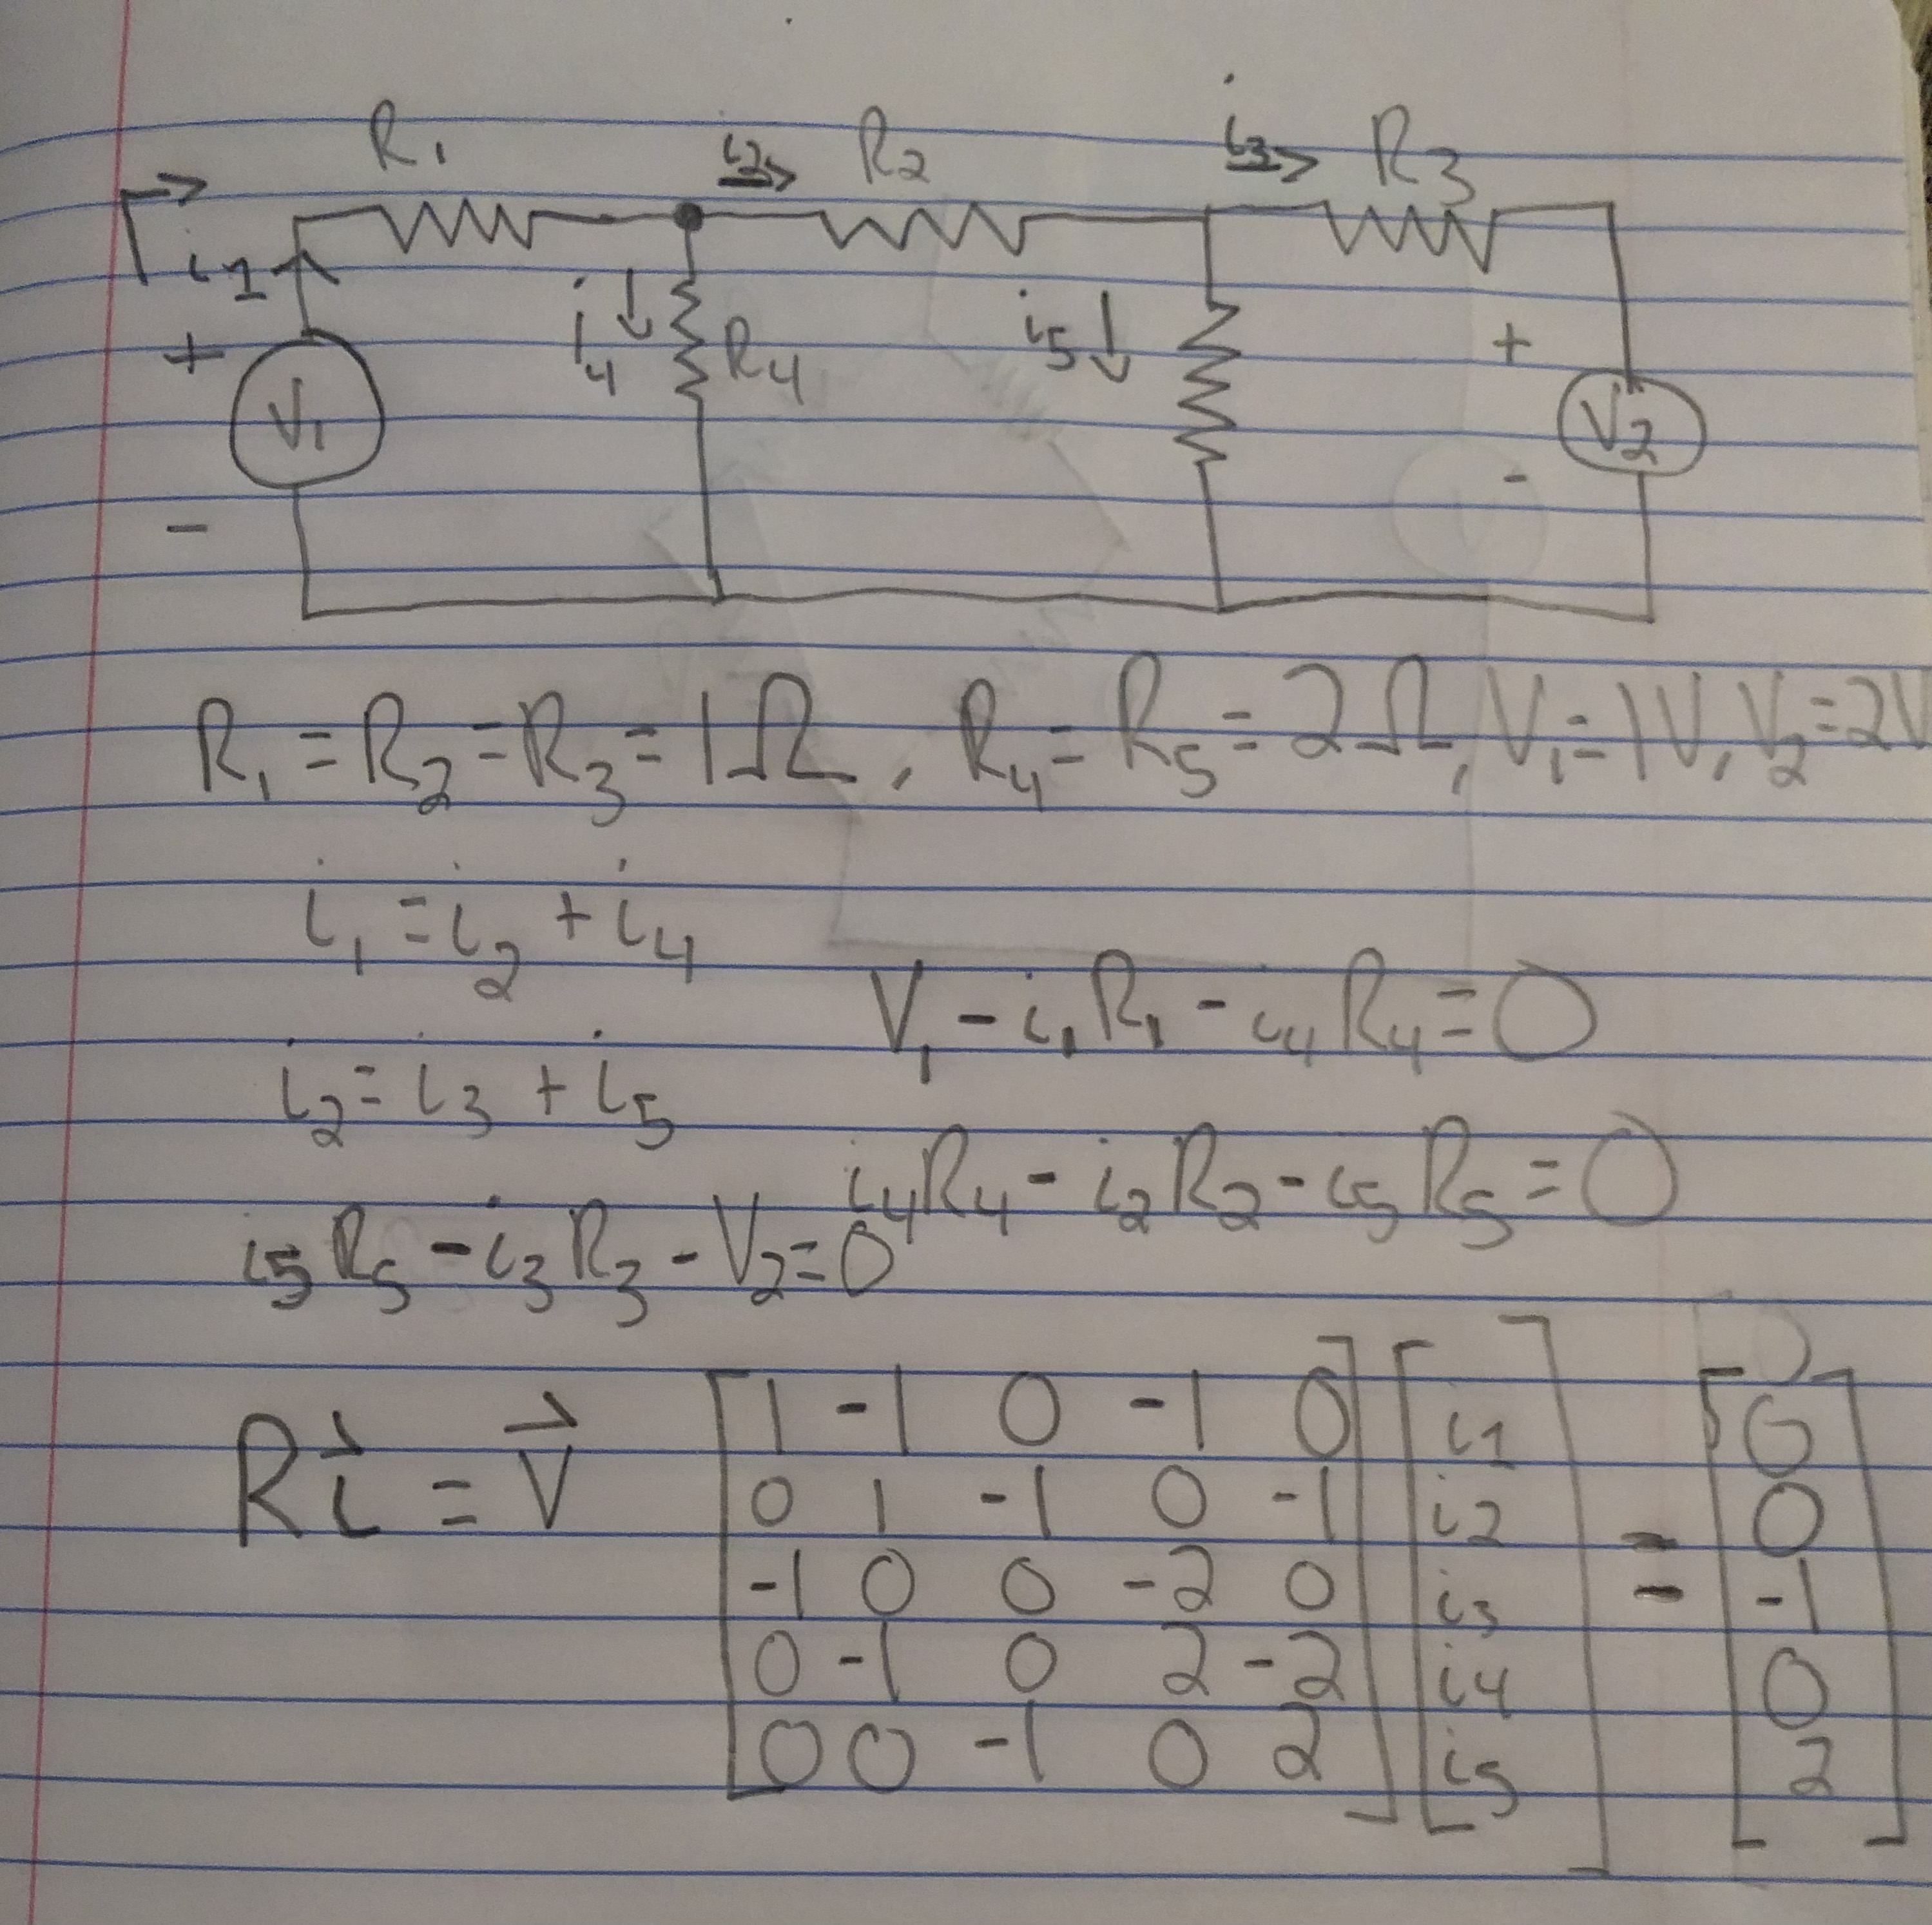 R1 i2 R2 i3 R3
i1
+ i4 R4 i5 +
V1 V2
- -
R1 = R2 = R3 = 1Ω, R4 = R5 = 2Ω, V1 = 1V, V2 = 2V
i1 = i2 + i4
V1 - i1R1 - i4R4 = 0
i2 = i3 + i5
i4R4 - i2R2 - i5R5 = 0
i5R5 - i3R3 - V2 = 0
Ri = V
1 -1 0 -1 0 i1 0
0 1 -1 0 -1 i2 = 0
-1 0 0 -2 0 i3 -1
0 -1 0 2 -2 i4 0
0 0 -1 0 2 i5 2